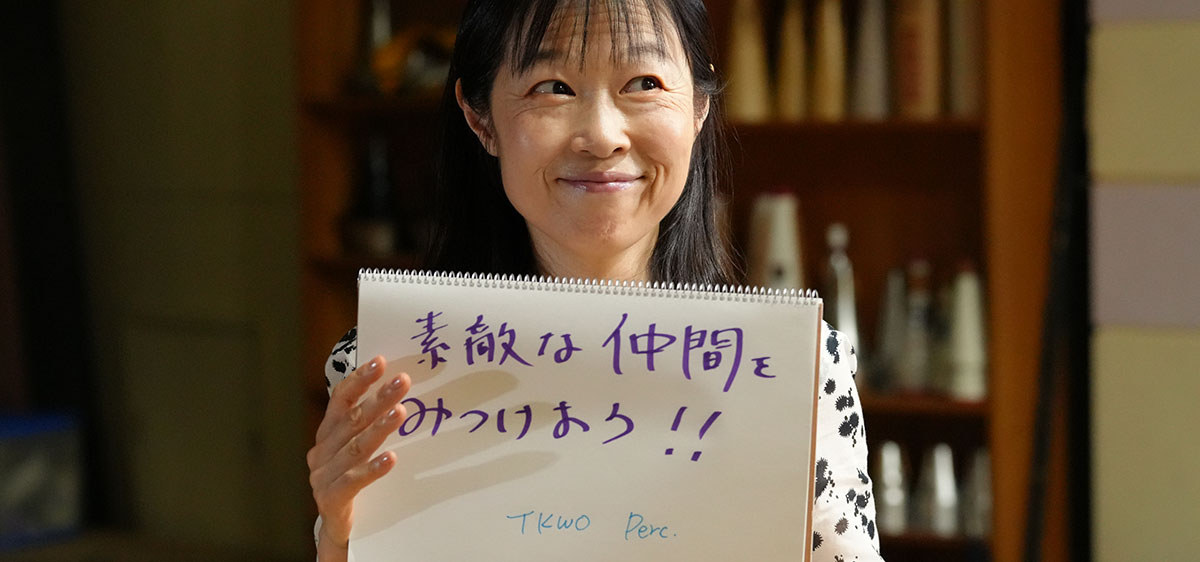 素敵な仲間を
みつけよう!!
TKWO Perc.